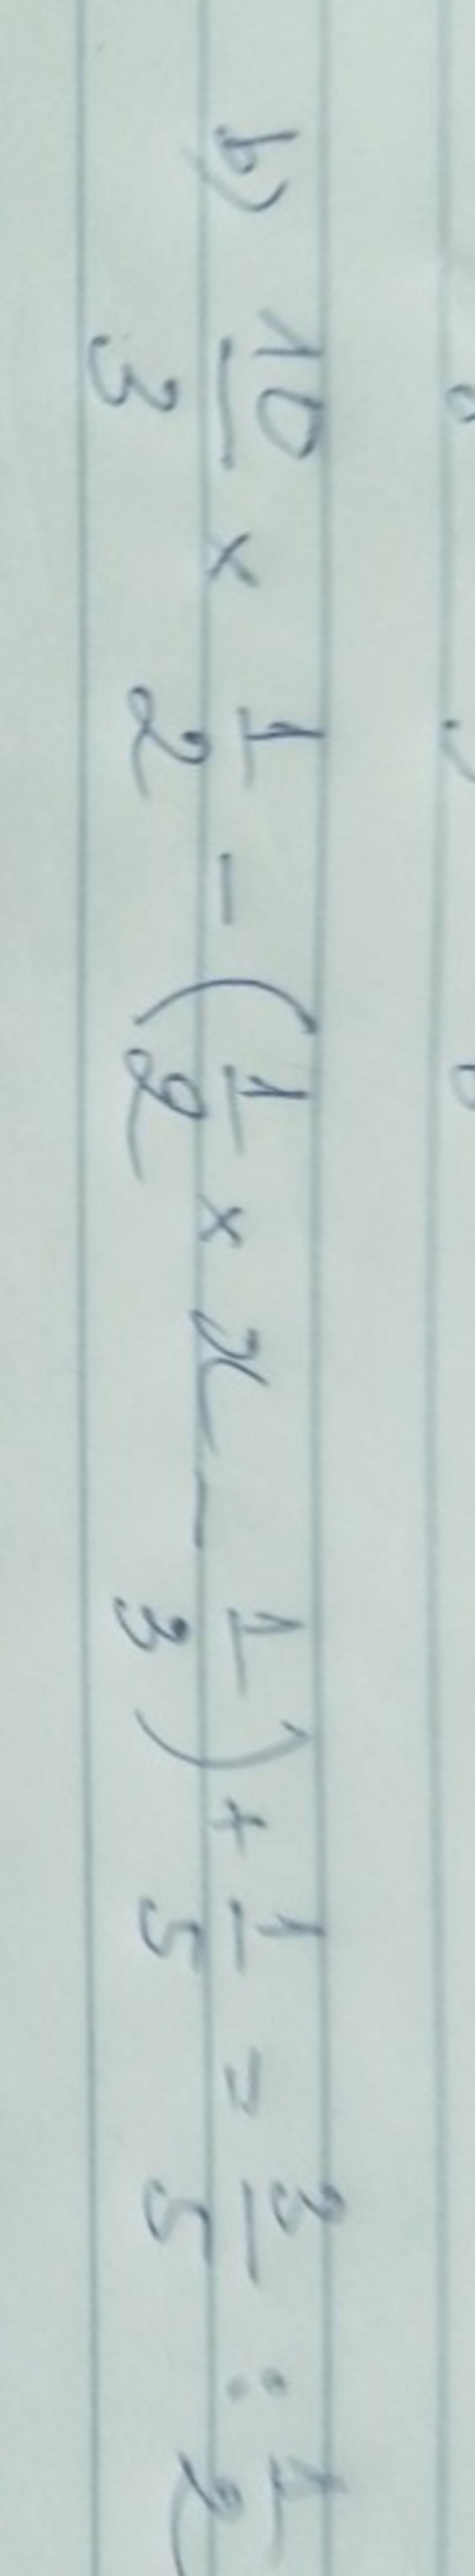 b) 10/3 × 1/2 - (1/2 × x - 1/3) + 1/5 = 3/5 : 1/2